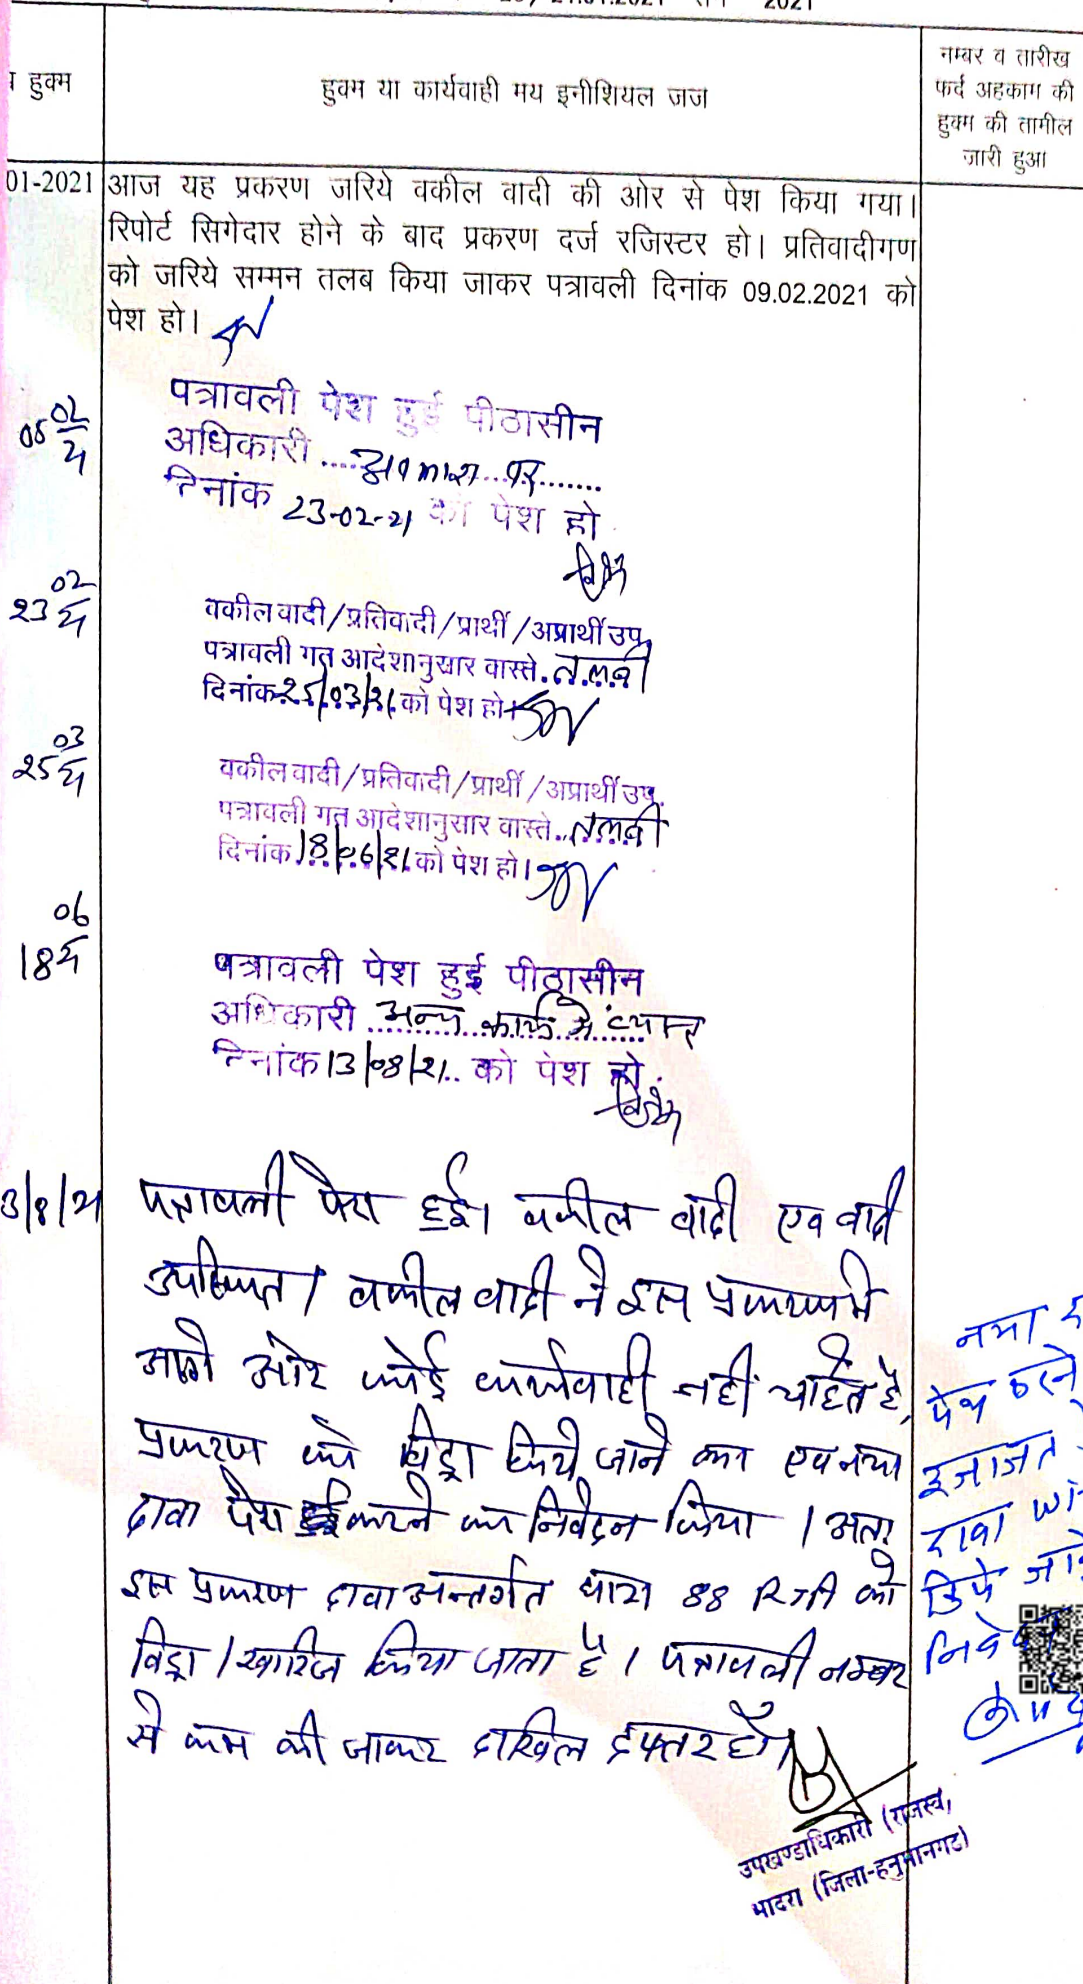 21.01.2021 2021
हुक्म
हुक्म या कार्यवाही मय इनीशियल जज
नम्बर व तारीख
फर्द अहकाम की
हुक्म की तामील
जारी हुआ
01-2021 आज यह प्रकरण जरिये वकील वादी की ओर से पेश किया गया।
रिपोर्ट सिगेदार होने के बाद प्रकरण दर्ज रजिस्टर हो। प्रतिवादीगण
को जरिये सम्मन तलब किया जाकर पत्रावली दिनांक 09.02.2021 को
पेश हो।
पत्रावली पेश हुई पीठासीन
अधिकारी ..... अवकाश पर .......
दिनांक 23-02-21 को पेश हो
23 02/21
वकील वादी/प्रतिवादी/प्रार्थी/अप्रार्थी उप.
पत्रावली गत आदेशानुसार वास्ते. तलबी
दिनांक 25/03/21 को पेश हो।
25 03/21
वकील वादी/प्रतिवादी/प्रार्थी/अप्रार्थी उप.
पत्रावली गत आदेशानुसार वास्ते.. तलबी
दिनांक 18/06/21 को पेश हो।
18 06/21
पत्रावली पेश हुई पीठासीन
अधिकारी अन्य कार्य में व्यस्त
दिनांक 13/08/21.. को पेश हो.
3/8/21 पत्रावली पेश हुई। वकील वादी एव वादी
उपस्थित। वकील वादी ने इस प्रकरण मे
आगे ओर कोई कार्यवाही नहीं चाहते है,
प्रकरण को विड्रा किये जाने का एव नया
दावा पेश करने का निवेदन किया। अतः
इस प्रकरण दावा अन्तर्गत धारा 88 RTA को
विड्रा/खारिज किया जाता है। पत्रावली नम्बर
से कम की जाकर दाखिल दफ्तर हो।
नया
पेश करने
इजाजत
दावा
जा
उपखण्डाधिकारी (राजस्व)
भादरा (जिला-हनुमानगढ)